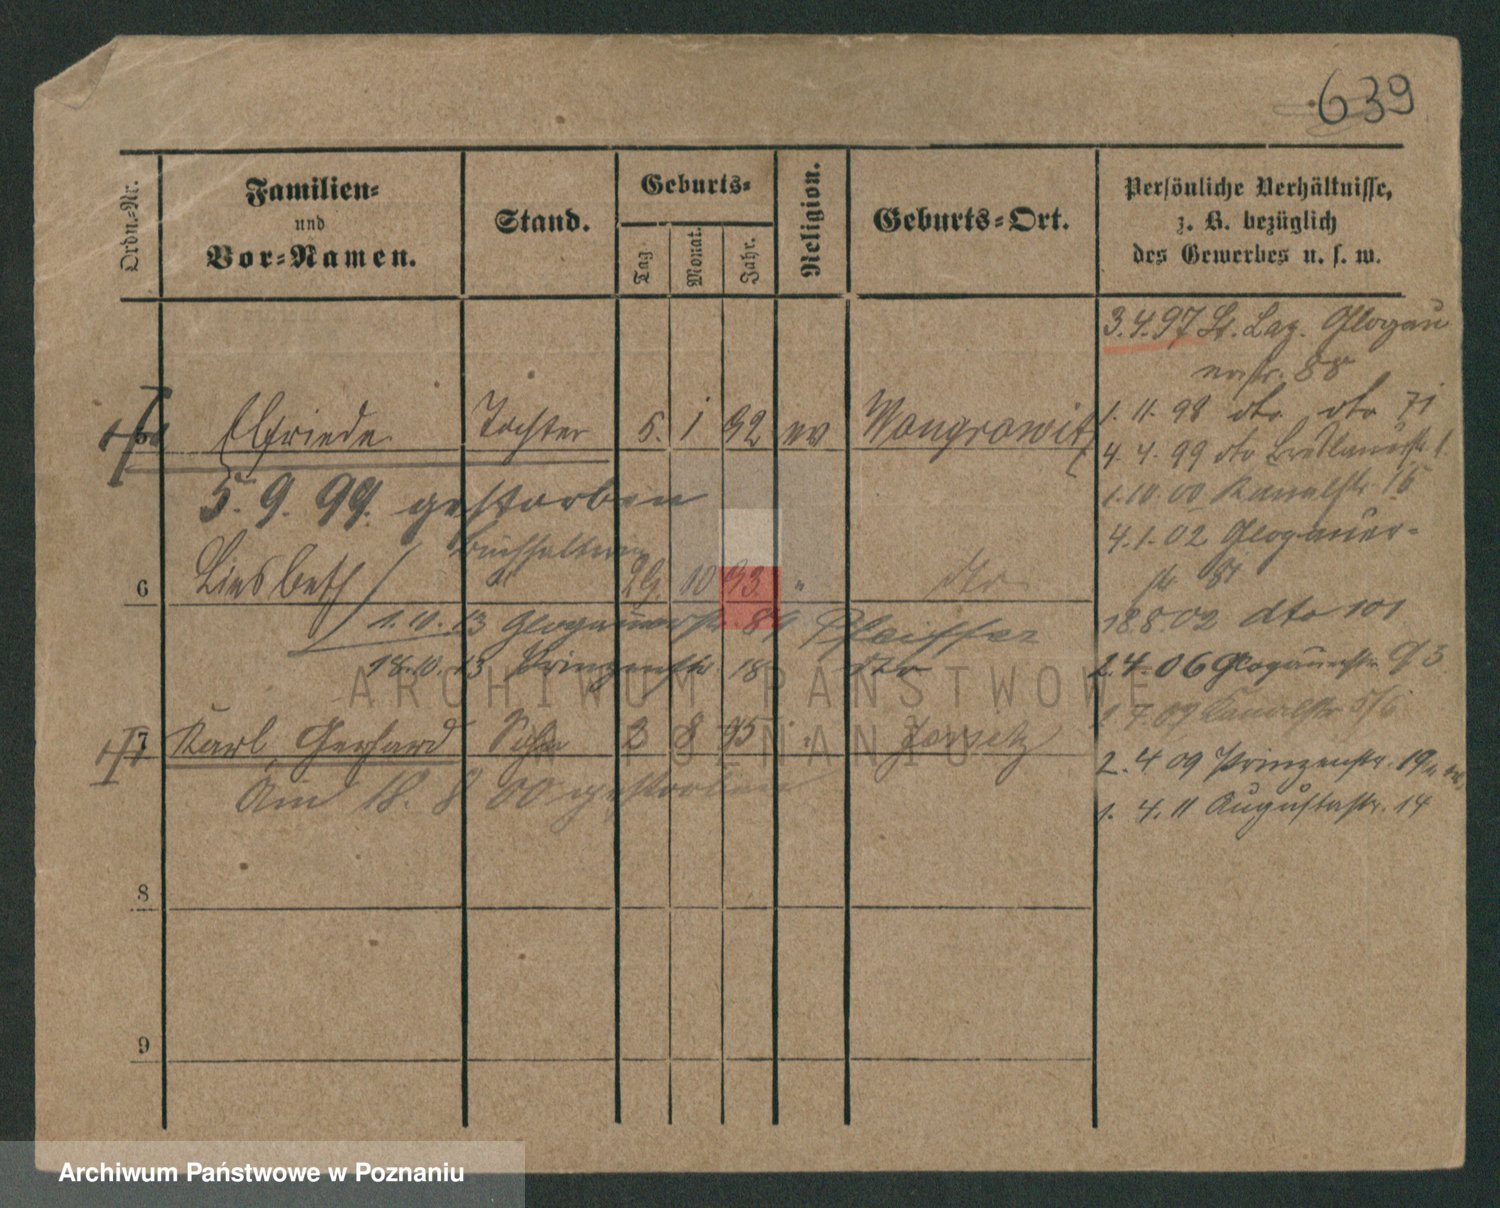 639
Ordn.-Nr.
Familien-
und
Vor-Namen.
Stand.
Geburts-
Tag
Monat.
Jahr.
Religion.
Geburts-Ort.
Persönliche Verhältnisse,
z. B. bezüglich
des Gewerbes u. s. w.
3.4.97 St. Laz. Glogau
erstr. 88
Elfriede Tochter 5. 1 92 ev Wongrowitz
1. 11. 98 dto dto 71
4. 4. 99 dto
5. 9. 99. gestorben
1.10.00 Kanalstr. 15
Buchhalterin
4.1.02 Glogauer-
6 Liesbeth 29. 10 93. " dto
str 87
1. 10. 13 Glogauerstr. 89 Pfeiffer
18.8.02 dto 101
18.10.13 Prinzenstr. 18 dto
2.4.06 Glogauerstr. 93
7 Karl, Gerhard Sohn 3 8 95 " Jersitz
1.7.09 Kanalstr.
2. 4 09 Prinzenstr. 19
Am 18. 8 00 gestorben
1. 4. 11 Augustastr. 14
8
9
ARCHIWUM PAŃSTWOWE
W POZNANIU
Archiwum Państwowe w Poznaniu